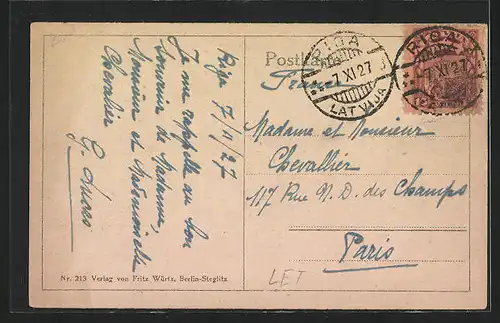 Riga 7/11/27
Je me rappelle au bon
souvenir de Madame,
Monsieur et Mademoiselle
Chevalier
G.
Postkarte
France
RIGA
7 XI 27
LATVIJA
RIGA
7 XI 27
Madame et Monsieur
Chevallier
117 Rue N. D. des Champs
Paris
LET
Nr. 213 Verlag von Fritz Würtz, Berlin-Steglitz